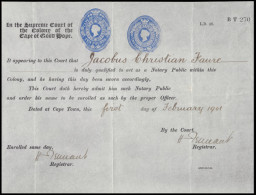 In the Supreme Court of
the Colony of the
Cape of Good Hope.
It appearing to this Court that Jacobus Christian Faure
is duly qualified to act as a Notary Public within this
Colony, and he having this day been sworn accordingly.
This Court doth hereby admit him such Notary Public
and order his name to be enrolled as such by the proper Officer.
Dated at Cape Town, this first day of February 19
By the Court.
Registrar.
Enrolled same day.
Registrar.